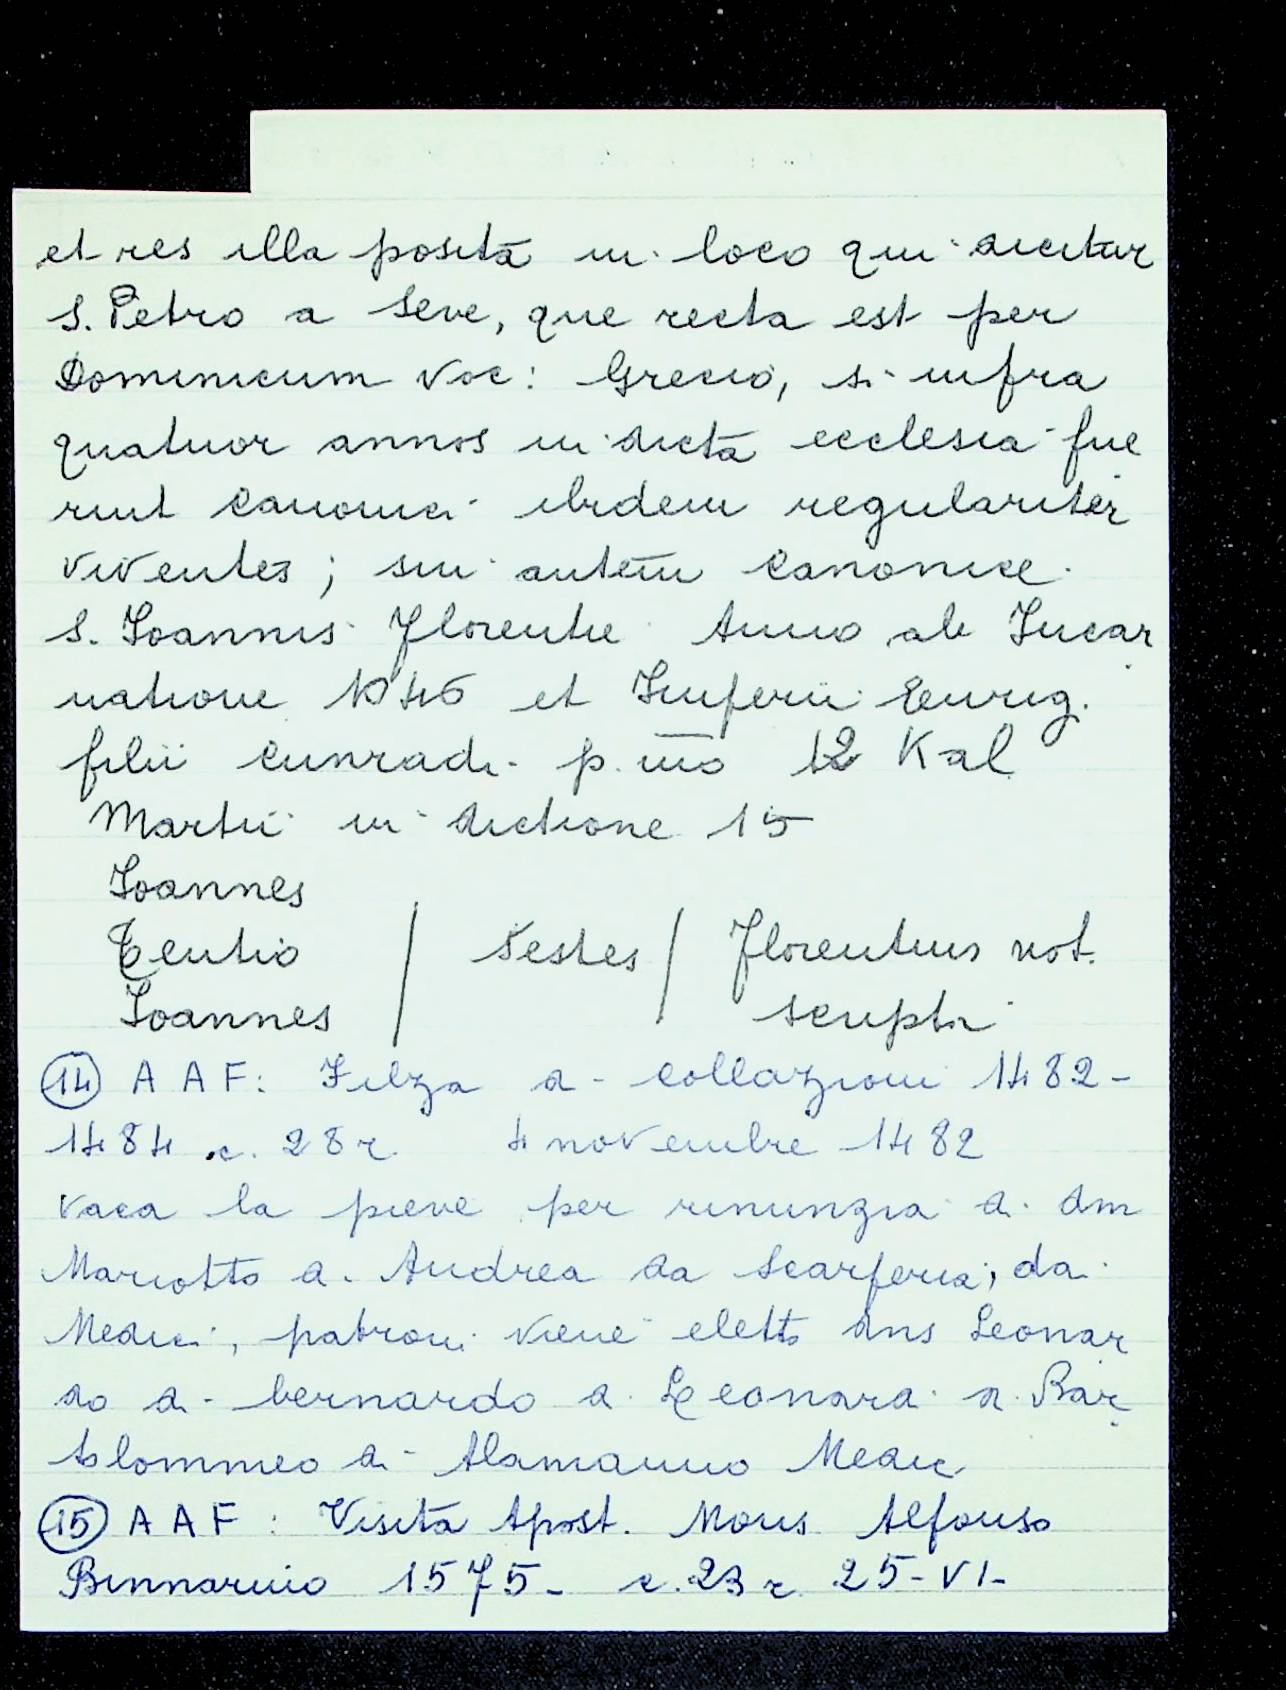 et res illa posita in loco qui dicitur
S. Petro a Seve, que recta est per
Dominicum voc: Grecio, si infra
quatuor annos in dicta ecclesia fue
rint canonici ibidem regulariter
viventes; sin autem canonice
S. Ioannis Florentie Anno ab Incar
natione 1046 et Imperii Enrig.
filii Cunradi p.mo 12 Kal
Martii in dictione 15
Ioannes
Teutio / Testes / Florentius not.
Ioannes scripsi
(14) A A F: Filza di collazioni 1482-
1484 c. 28 r. 4 novembre 1482
vaca la pieve per rinunzia di dm
Mariotto di Andrea da Scarperia, dai
Medici, patroni viene eletto dns Leonar
do di bernardo di Leonardi di Bar
tolommeo di Alamanno Medici
(15) A A F: Visita Apost. Mons. Alfonso
Binnarino 1575- c. 23 r. 25-VI-